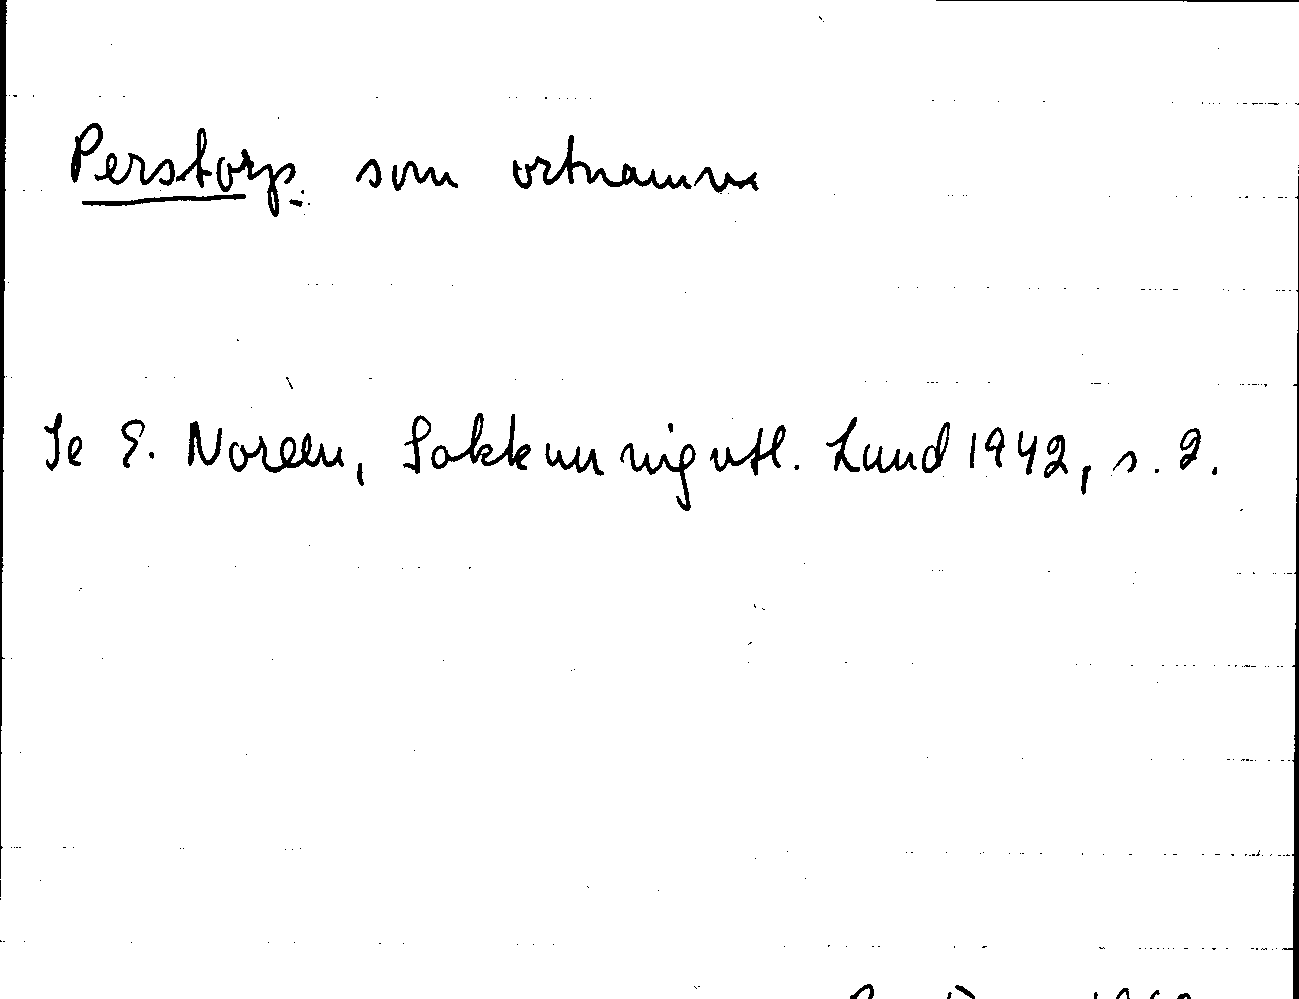 Perstorp som ortnamn
Se E. Noreen, Sakkunnigutl. Lund 1942, s. 2.